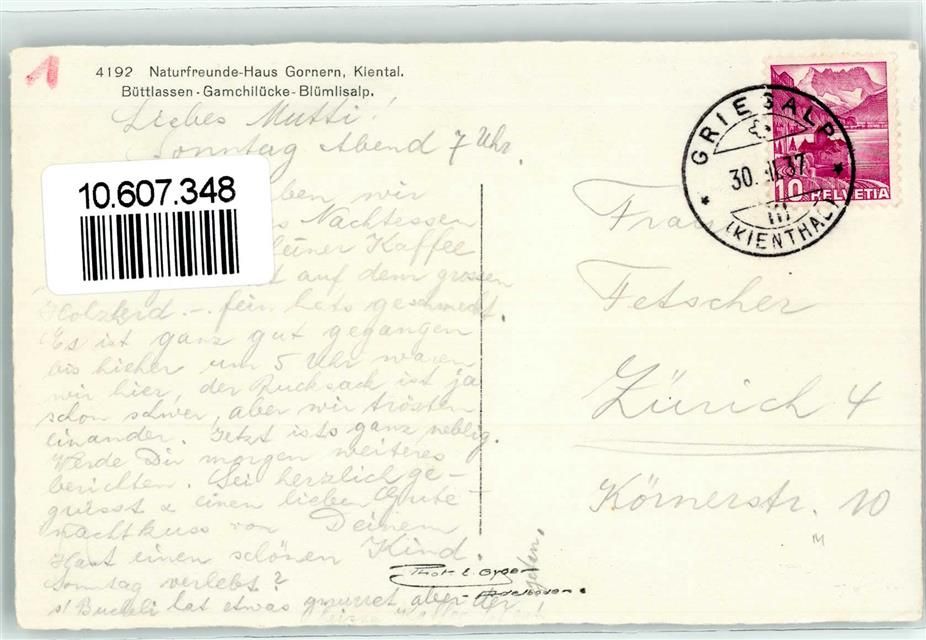 1
4192 Naturfreunde-Haus Gornern, Kiental.
Büttlassen - Gamchilücke - Blümlisalp.
Liebes Mutti!
Sonntag Abend 7 Uhr.
ben wir
Nachtessen
Kaffee
auf dem grossen
Holzherd - fein hets geschmeckt.
Es ist ganz gut gegangen
bis hieher um 5 Uhr waren
wir hier, der Rucksack ist ja
schon schwer, aber wir trösten
einander. Jetzt ists ganz neblig.
Werde Dir morgen weiteres
berichten. Sei herzlich ge-
grüsst & einen lieben Gute-
nachtkuss von Deinem
Hast einen schönen Kind.
Sonntag verlebt?
s' Bucheli hat etwas gmurret aber der
10.607.348
GRIESALP
30. 37
(KIENTHAL)
10 HELVETIA
Frau
Fetscher
Zürich 4
Körnerstr. 10
M
Phot. E. Gyger
Adelboden.